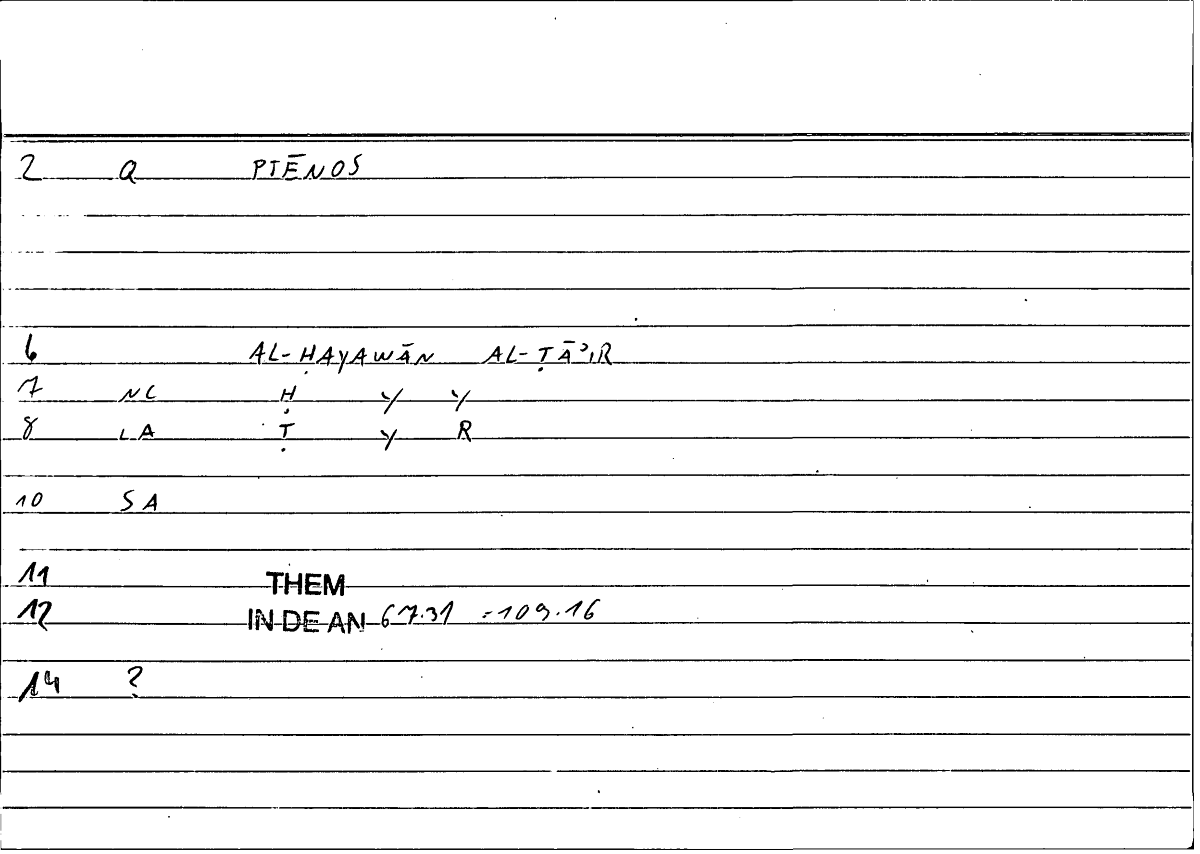 2 Q PTĒNOS
6 AL-ḤAYAWĀN AL-ṬĀʾIR
7 NC Ḥ Y Y
8 LA Ṭ Y R
10 SA
11 THEM
12 IN DE AN 67.31 = 109.16
14 ?